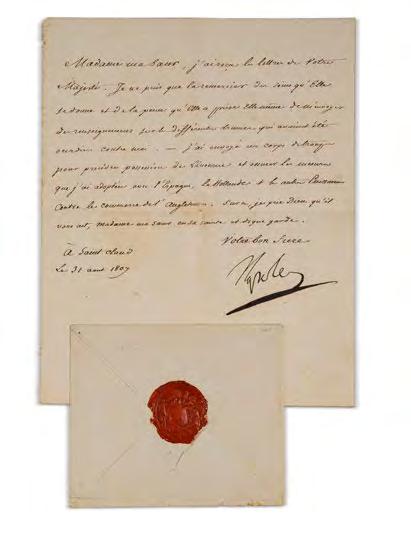 Madame ma Sœur, j'ai reçu la lettre de Votre
Majesté. Je ne puis que la remercier des soins qu'Elle
se donne et de la peine qu'Elle a prise Elle même de m'envoyer
des renseignemens sur les différentes trames qui avaient été
ourdies contre moi. — J'ai envoyé un corps de troupes
pour prendre possession de Livourne et assurer les mesures
que j'ai adoptées avec l'Espagne, la Hollande et les autres Puissances
contre le commerce de l'Angleterre. Sur ce, je prie Dieu qu'il
vous ait, madame ma Sœur en sa sainte et digne garde.
Votre bon frère
à Saint Cloud
Le 31 aout 1807
Napole